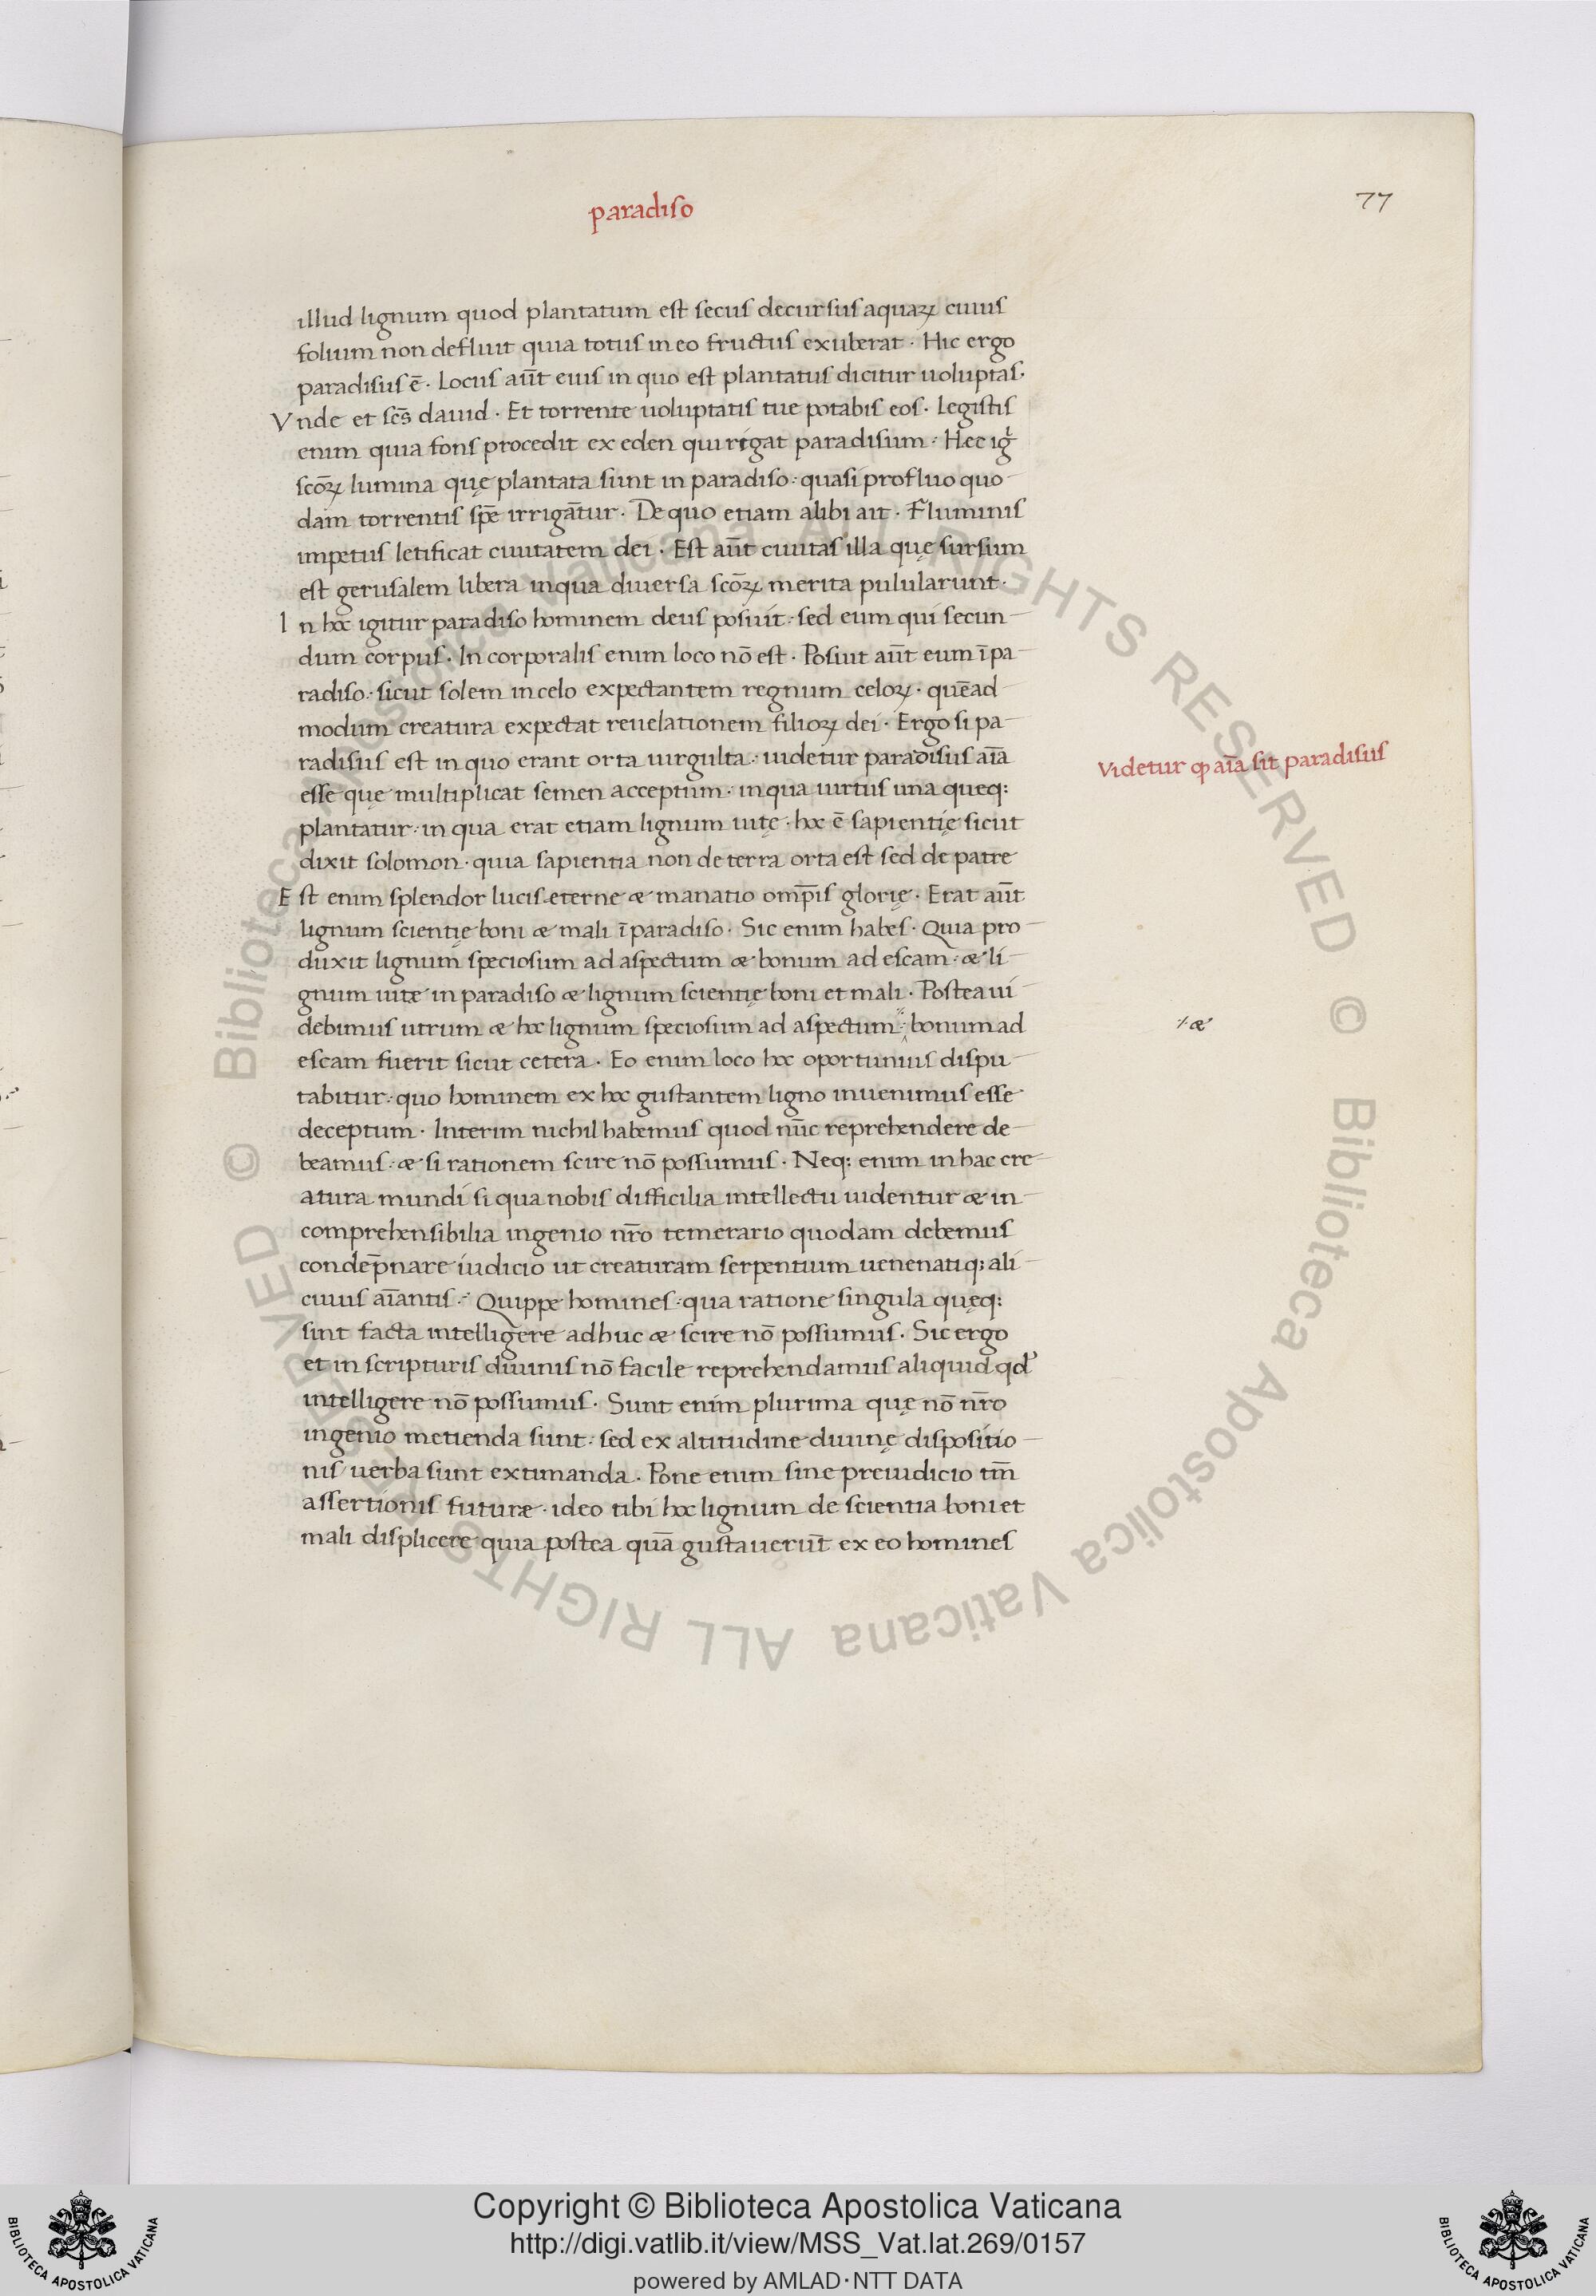 paradiso
77
illud lignum quod plantatum est secus decursus aquaꝝ cuius
folium non defluit quia totus in eo fructus exuberat · Hic ergo
paradisus ē · Locus aūt eius in quo est plantatus dicitur uoluptas ·
Vnde et scs̄ dauid · Et torrente uoluptatis tue potabis eos · Legistis
enim quia fons procedit ex eden qui rigat paradisum : Hęc igͥ
scōꝝ lumina quę plantata sunt in paradiso : quasi profluo quo
dam torrentis spē irrigāntur · De quo etiam alibi ait · Fluminis
impetus letificat ciuitatem dei · Est aūt ciuitas illa quę sursum
est gerusalem libera in qua diuersa scōꝝ merita pulularunt ·
In hoc igitur paradiso hominem deus posuit : sed eum qui secun
dum corpus · In corporalis enim loco nō est · Posuit aūt eum ī pa
radiso : sicut solem in celo expectantem regnum celoꝝ · quēad
modum creatura expectat reuelationem filioꝝ dei · Ergo si pa
radisus est in quo erant orta uirgulta : uidetur paradisus aīa
esse quę multiplicat semen acceptum · in qua uirtus una queq:
plantatur : in qua erat etiam lignum uitę · hoc ē sapientię sicut
dixit solomon · quia sapientia non de terra orta est sed de patre
Est enim splendor lucis eterne & manatio omp̄is glorię · Erat aūt
lignum scientię boni & mali ī paradiso · Sic enim habes · Quia pro
duxit lignum speciosum ad aspectum & bonum ad escam : & li
gnum uitæ in paradiso & lignum scientię boni et mali · Postea ui
debimus utrum & hoc lignum speciosum ad aspectum : bonum ad
escam fuerit sicut cetera · Eo enim loco hoc oportunius dispu
tabitur : quo hominem ex hoc gustantem ligno inuenimus esse
deceptum · Interim nichil habemus quod nūc reprehendere de
beamus : & si rationem scire nō possumus · Neq: enim in hac cre
atura mundi si qua nobis difficilia intellectu uidentur & in
comprehensibilia ingenio nr̄o temerario quodam debemus
condep̄nare iudicio ut creaturam serpentium uenenatiq; ali
cuius aīantis : Quippe homines : qua ratione singula quęq:
sint facta intelligere adhuc & scire nō possumus · Sic ergo
et in scripturis diuinis nō facile reprehendamus aliquid qd'
intelligere nō possumus · Sunt enim plurima quę nō nr̄o
ingenio metienda sunt : sed ex altitudine diuinę dispositio
nis uerba sunt extimanda · Pone enim sine preiudicio tm̄
assertionis futuræ · ideo tibi hoc lignum de scientia boni et
mali displicere quia postea quā gustauerūt ex eo homines
Videtur ꝙ aīa sit paradisus
·/· &
Copyright © Biblioteca Apostolica Vaticana
http://digi.vatlib.it/view/MSS_Vat.lat.269/0157
powered by AMLAD·NTT DATA
BIBLIOTECA APOSTOLICA VATICANA
BIBLIOTECA APOSTOLICA VATICANA
© Biblioteca Apostolica Vaticana ALL RIGHTS RESERVED
© Biblioteca Apostolica Vaticana ALL RIGHTS RESERVED